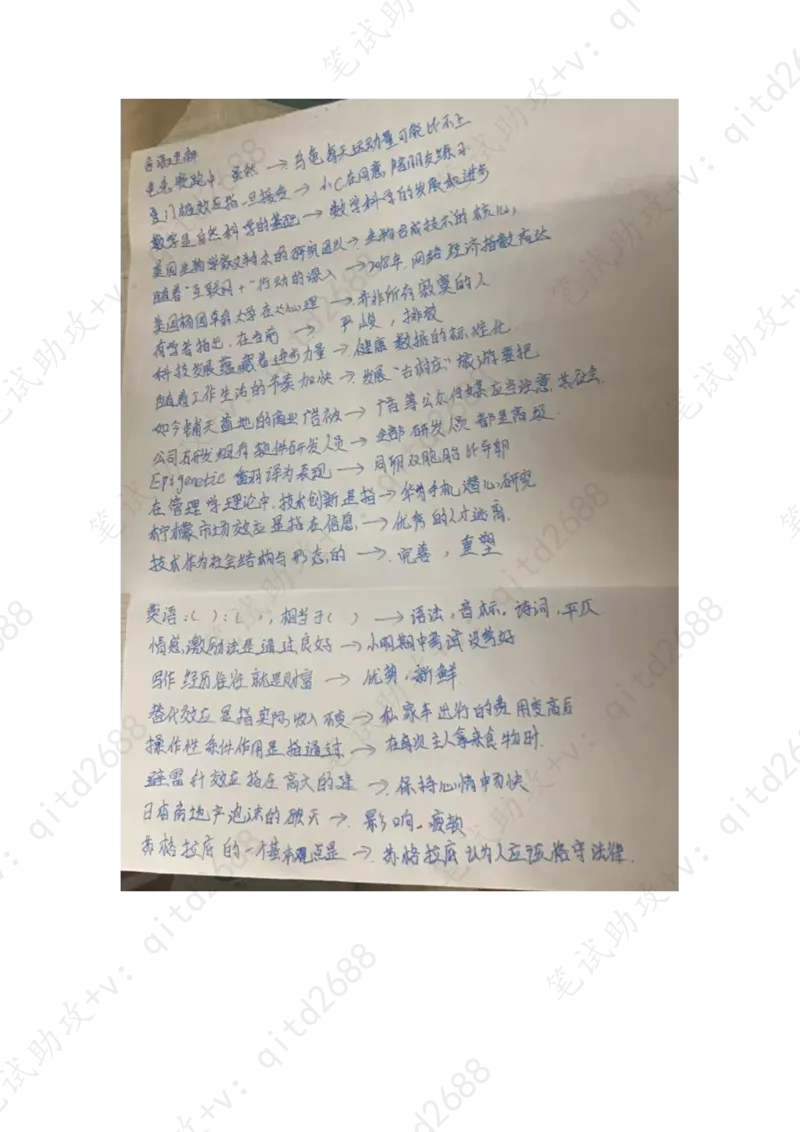 言语理解
龟兔赛跑中,虽然→乌龟每天运动量可能比不上
登门槛效应指一旦接受→小C在同意陪朋友练习
数学是自然科学的基础→数学科学的发展和进步
美国生物学家艾特木的研究团队→生物合成技术的核心,
随着"互联网+"行动的深入→2018年,网络经济指数高达
美国杨百翰大学在<心理→并非所有寂寞的人
有学者指出,在当前→严峻,排放
科技发展蕴藏着进步力量→健康数据的标准化
随着工作生活的节奏加快→发展"古村庄"旅游要把
如今铺天盖地的商业广告被→广告等公众传媒应当注意其社会
公司研发组有软件研发人员→全部研发人员都是高级.
Epigenetic 翻译为表观→同卵双胞胎比异卵
在管理学理论中,技术创新是指→华为手机潜心研究
柠檬市场效应是指在信息→优秀的人才逃离.
技术作为社会结构与形态的→完善,重塑
英语:( ):( ),相当于( )→语法,音标,诗词,平仄
情感激励法是通过良好→小明期中考试没考好
写作经历往往就是财富→优势,新鲜
替代效应是指实际收入不变→私家车出行的费用变高后
操作性条件作用是指通过→在每次主人拿来食物时.
避雷针效应指在高大的建→保持心情中愉快
日本房地产泡沫的破灭→影响,疲软
苏格拉底的一个基本观点是→苏格拉底认为人应该恪守法律.
笔试助攻+v:qitd2688